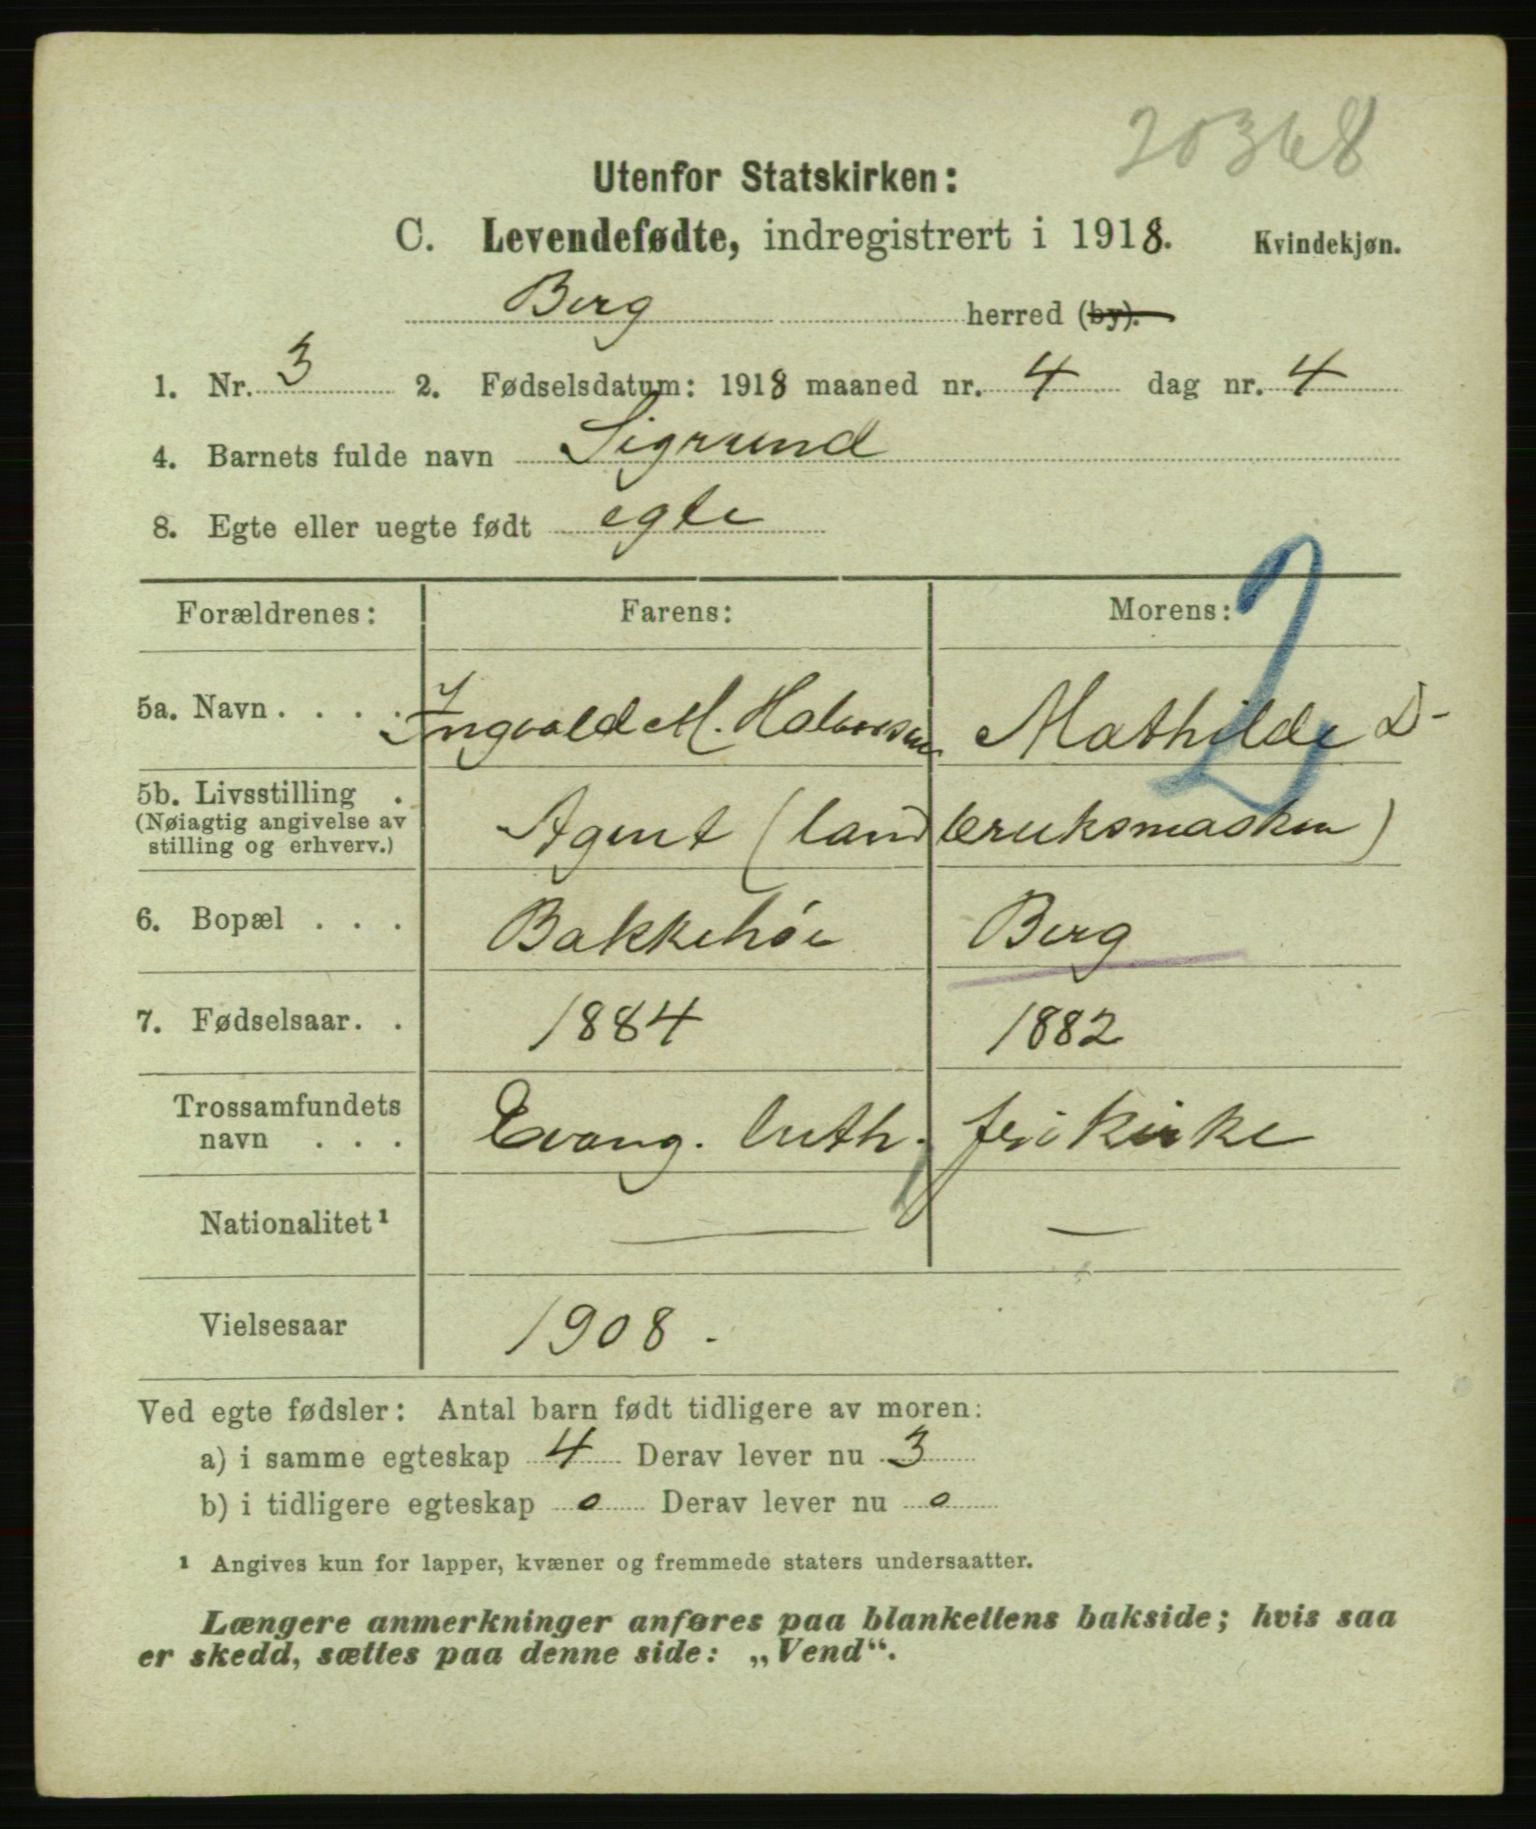 20368
Utenfor Statskirken:
C. Levendefødte, indregistrert i 1918. Kvindekjøn.
Berg herred (by).
1. Nr. 3 2. Fødselsdatum: 1918 maaned nr. 4 dag nr. 4
4. Barnets fulde navn Sigrund
8. Egte eller uegte født egte
Forældrenes: Farens: Morens:
2
5a. Navn . . . . Ingvald M. Halvorsen Mathilde D-
5b. Livsstilling . Agent (landbruksmaskin)
(Nøiagtig angivelse av
stilling og erhverv.)
6. Bopæl . . . Bakkehöi Berg
7. Fødselsaar. . 1884 1882
Trossamfundets
navn . . . Evang. luth. frikirke
Nationalitet¹ — —
Vielsesaar 1908.
Ved egte fødsler: Antal barn født tidligere av moren:
a) i samme egteskap 4 Derav lever nu 3
b) i tidligere egteskap 0 Derav lever nu 0
¹ Angives kun for lapper, kvæner og fremmede staters undersaatter.
Længere anmerkninger anføres paa blankettens bakside; hvis saa
er skedd, sættes paa denne side: „Vend“.